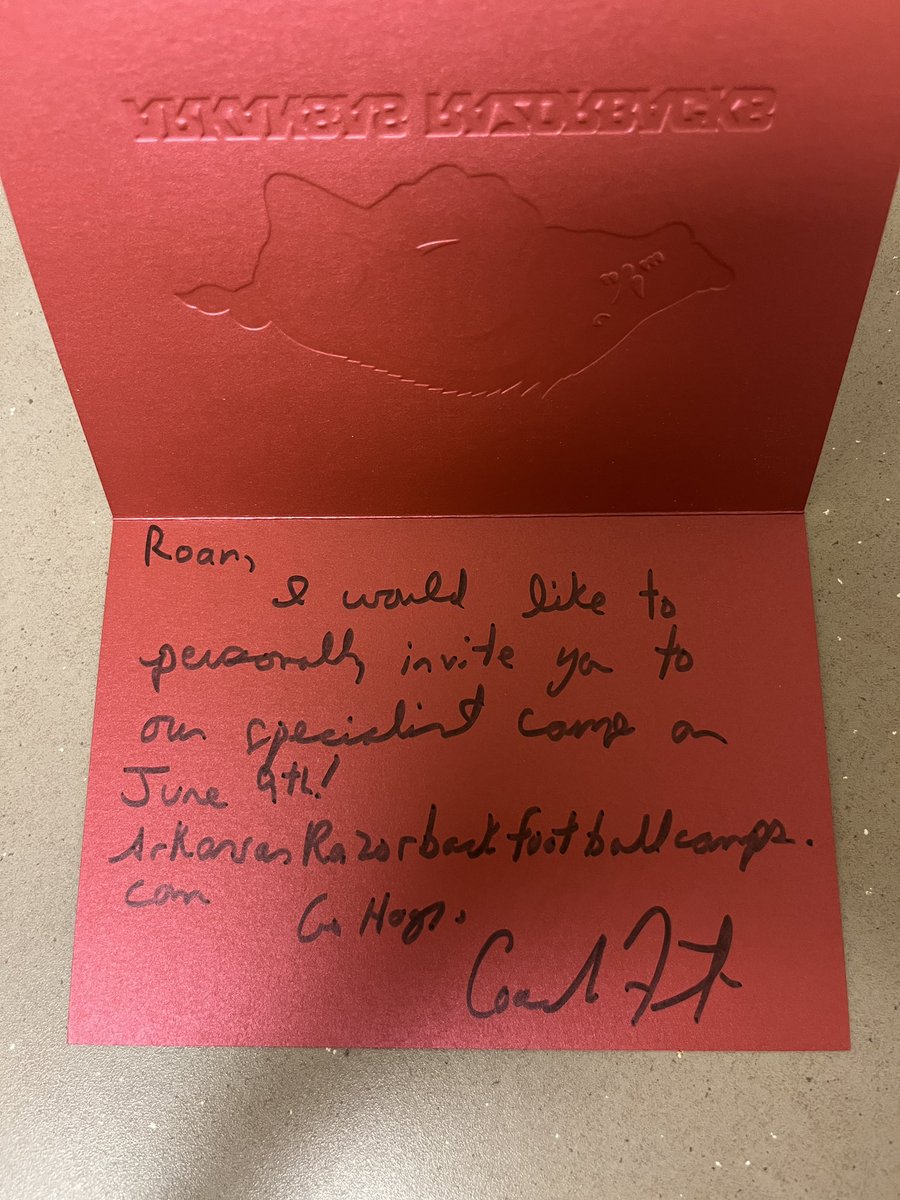 ARKANSAS RAZORBACKS
Roan,
I would like to
personally invite you to
our specialist camp on
June 9th!
ArkansasRazorbackfootballcamps.
com
Go Hogs.
Coach